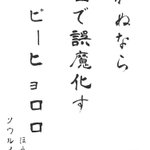 かぬなら
で誤魔化す
ピーヒョロロ
ほ
ソウル